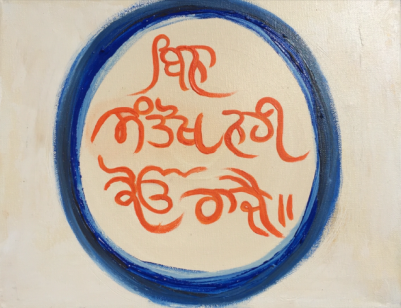 ਬਿਨਾ
ਸੰਤੋਖ ਨਹੀ
ਕੋਊ ਰਾਜੈ॥